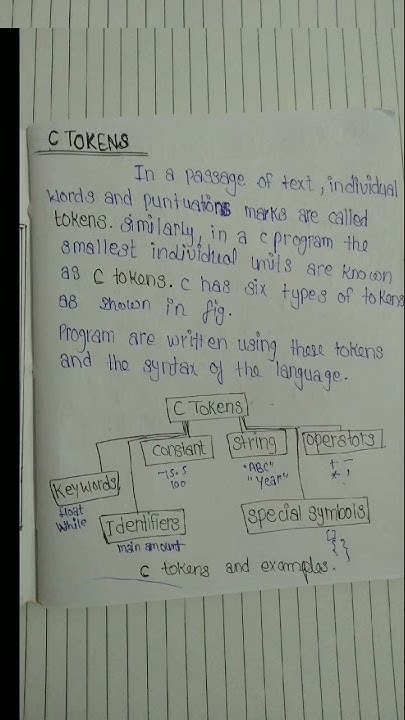 C TOKENS
In a passage of text, individual
words and puntuations marks are called
tokens. similarly, in a c program the
smallest individual units are known
as C tokens. C has six types of tokens
as shown in fig.
Program are written using these tokens
and the syntax of the language.
C Tokens
Constant
-15.5
100
String
"ABC"
"Year"
Operators
+ -
* ,
Keywords
float
While
Identifiers
main amount
Special Symbols
[]
{ }
C tokens and examples.